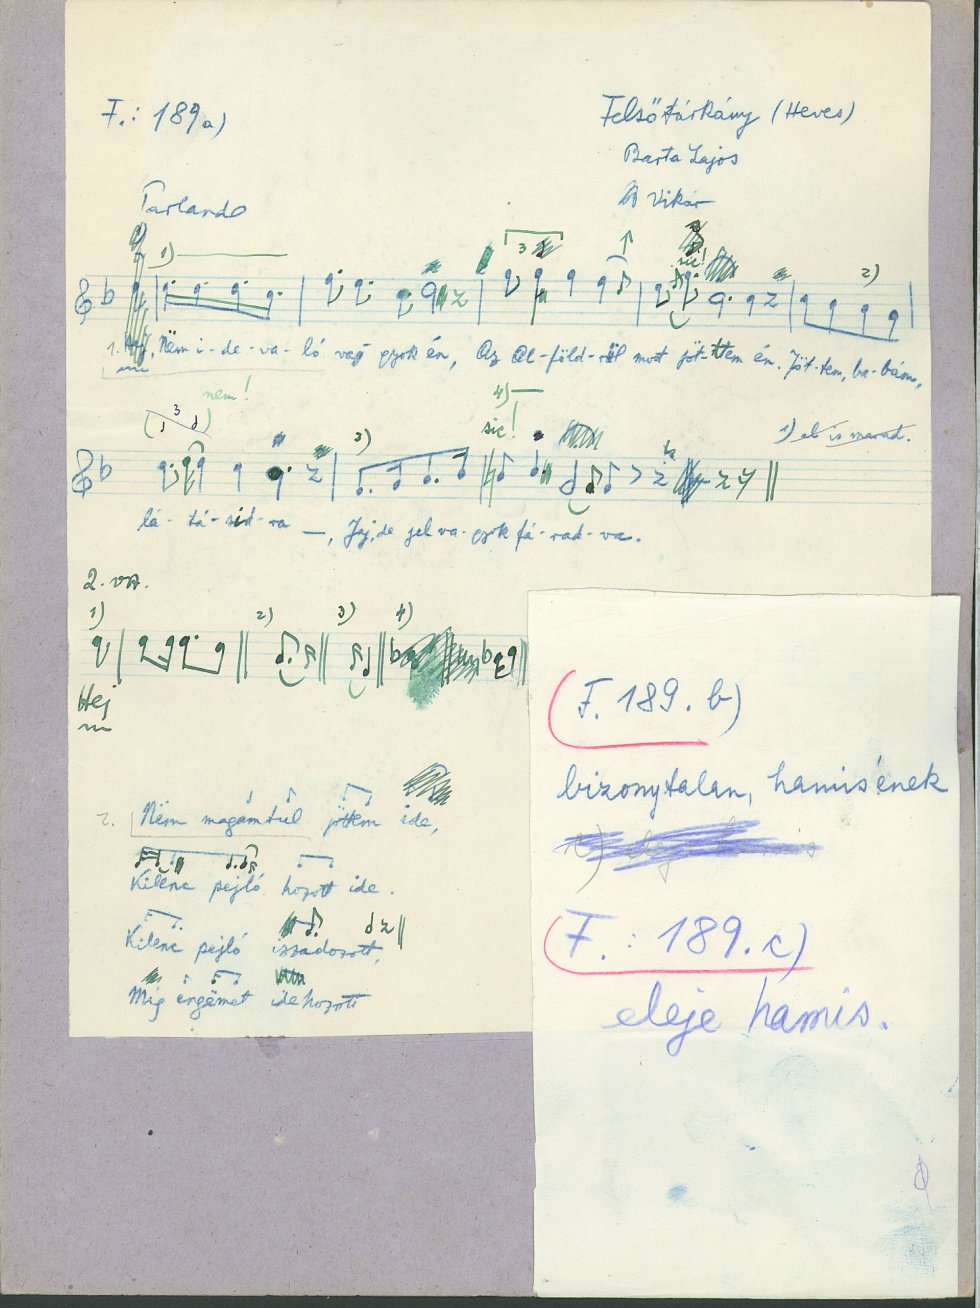 F.: 189a)
Felsőtárkány (Heves)
Barta Lajos
Vikár
Parlando
1)
3
sic!
2)
1. Nëm i-de-va-ló vagyok én, Az al-föld-ről most jöt-tem én. Jöt-tem, ba-bám,
nem!
(3)
4)
sic!
3)
1) el is marad.
lá-tá-sid-ra —, Jaj, de jel va-gyok fá-rad-va.
2. vsz.
1) 2) 3) 4)
Hej
2. Nëm magamtúl jöttem ide,
Kilenc pejló hozott ide.
Kilenc pejló izzadozott,
Míg engëmet ide hozott
(F. 189. b)
bizonytalan, hamis ének
(F.: 189. c)
eleje hamis.